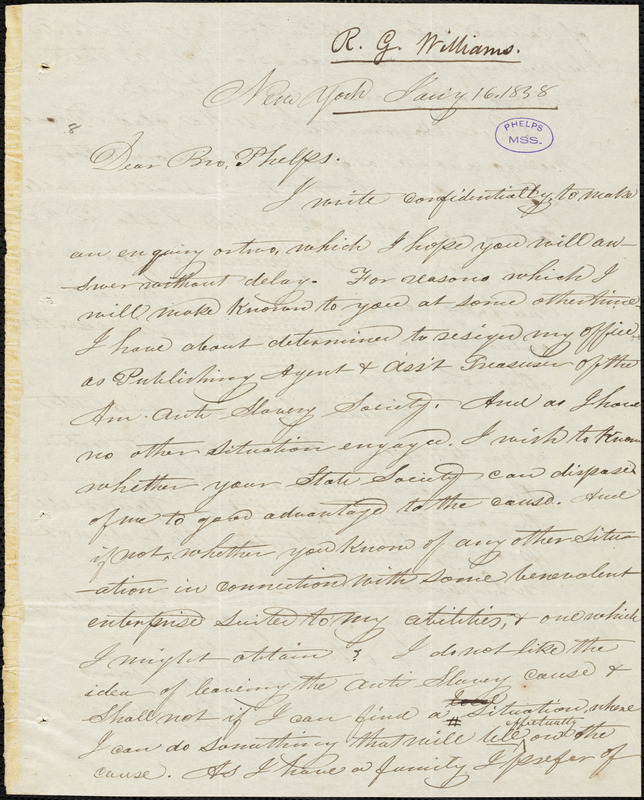 R. G. Williams.
New York Jan'y 16. 1838
PHELPS
MSS.
Dear Bro. Phelps.
I write confidentially, to make
an enquiry or two, which I hope you will an-
-swer without delay. For reasons which I
will make known to you at some other time
I have about determined to resign my office,
as Publishing Agent & Ass't Treasurer of the
Am. Anti Slavery Society. And as I have
no other situation engaged. I wish to know
whether your State Society can dispose
of me to good advantage to the cause. And
if not, whether you know of any other situa-
-ation in connection with some benevolent
enterprise suited to my abilities, & one which
I might obtain? I do not like the
idea of leaving the Anti Slavery cause &
shall not if I can find a situation, where
I can do something that will tell effectually on the
cause. As I have a family I prefer of